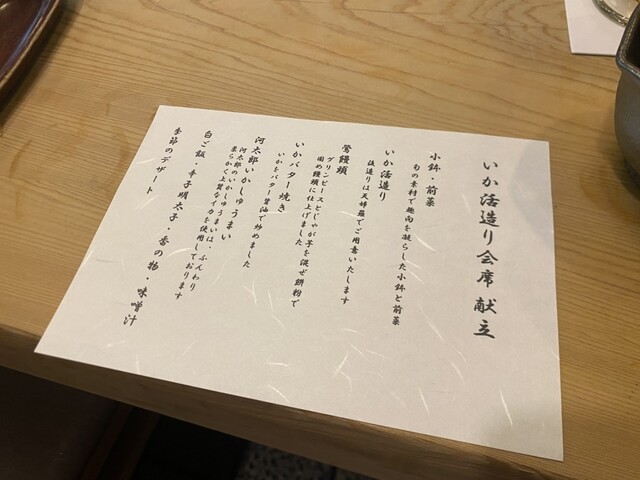 いか活造り会席 献立
小鉢・前菜
旬の素材で趣向を凝らした小鉢と前菜
いか活造り
後造りは天婦羅でご用意いたします
鶯饅頭
グリンピースとじゃが芋を混ぜ餅粉で
固め饅頭に仕上げました
いかバター焼き
いかをバター醤油で炒めました
河太郎いかしゅうまい
河太郎のいかしゅうまいは、ふんわり
柔らかく上質なイカを使用しております
白ご飯・辛子明太子・香の物・味噌汁
季節のデザート